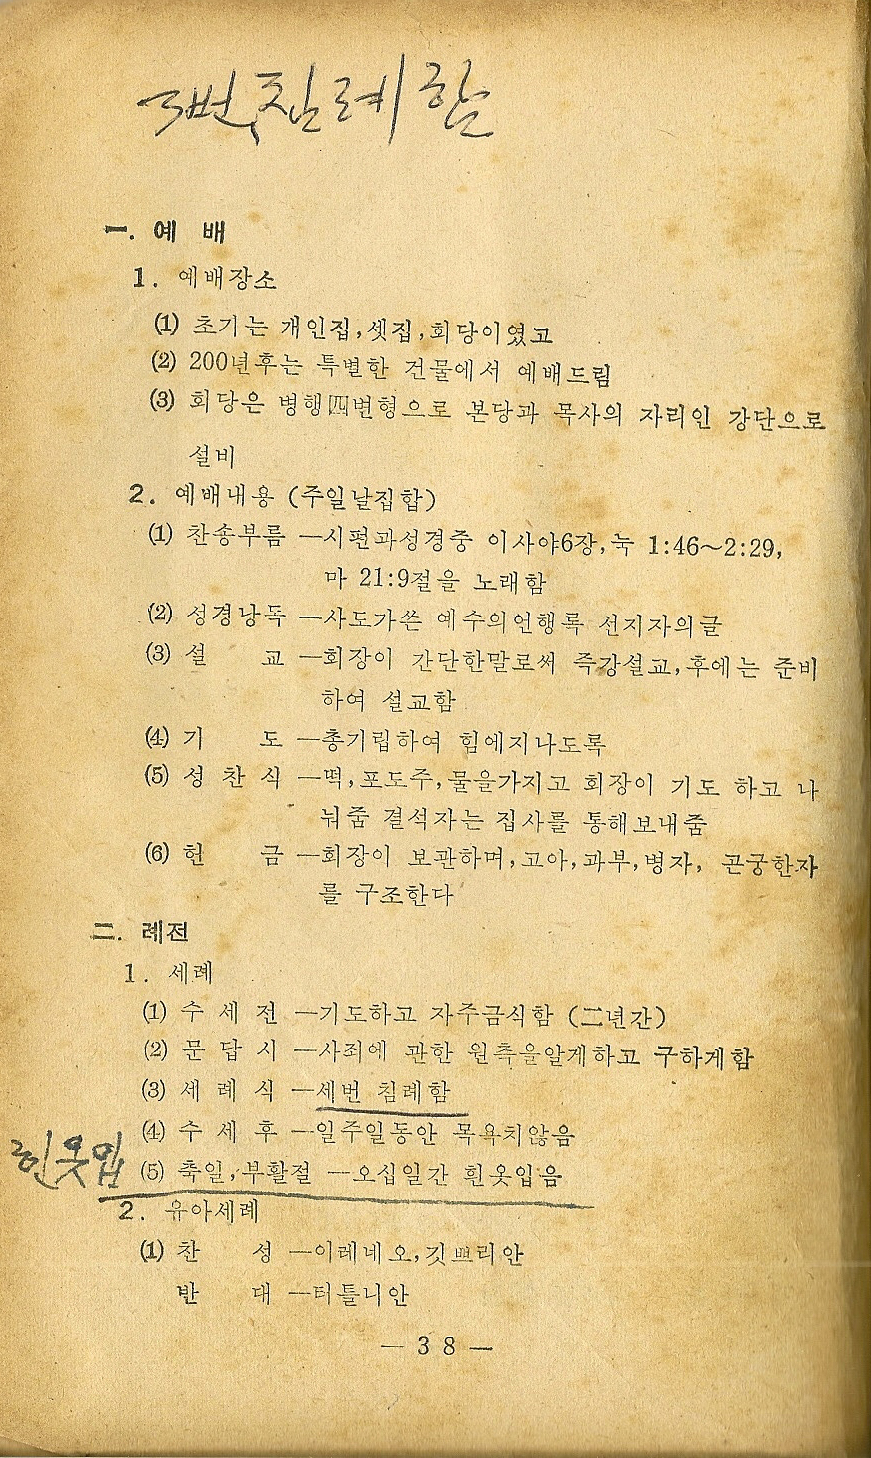 3번 침례함
一. 예 배
1. 예배장소
(1) 초기는 개인집,셋집,회당이였고
(2) 200년후는 특별한 건물에서 예배드림
(3) 회당은 병행四변형으로 본당과 목사의 자리인 강단으로
설비
2. 예배내용 (주일날집합)
(1) 찬송부름 —시편과성경중 이사야6장,눅 1:46~2:29,
마 21:9절을 노래함
(2) 성경낭독 —사도가쓴 예수의언행록 선지자의글
(3) 설 교 —회장이 간단한말로써 즉강설교,후에는 준비
하여 설교함
(4) 기 도 —총기립하여 힘에지나도록
(5) 성 찬 식 —떡,포도주,물을가지고 회장이 기도 하고 나
눠줌 결석자는 집사를 통해보내줌
(6) 헌 금 —회장이 보관하며,고아,과부,병자, 곤궁한자
를 구조한다
二. 례전
1. 세례
(1) 수 세 전 —기도하고 자주금식함 (二년간)
(2) 문 답 시 —사죄에 관한 원측을알게하고 구하게함
(3) 세 례 식 —세번 침례함
(4) 수 세 후 —일주일동안 목욕치않음
흰옷입 (5) 축일,부활절 —오십일간 흰옷입음
2. 유아세례
(1) 찬 성 —이레네오,깃쁘리안
반 대 —터틀니안
— 38 —